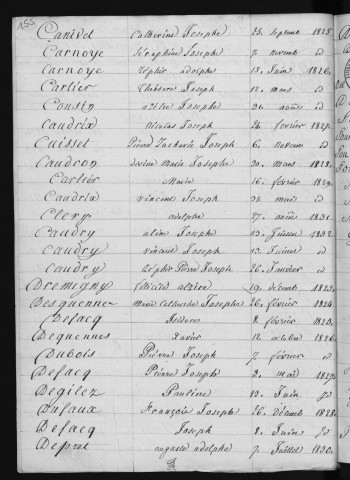 155.
Canivet Catherine Joseph 25. septemb 1825
Carnoye Séraphine Joseph 7. novemb d
Carnoye Zéphir adolphe 15. Juin 1826.
Cartier Joseph 12. mars d
Cousty Joseph 31. août d
Caudrix Nicolas Joseph 24. février 1827.
Cuisset Pierre Zacharie Joseph 6. novem d
Caudron divine Marie Joseph 20. mars 1828.
Cartier Marie 16. février 1829.
Caudrix vincent Joseph 31. mai d
Clery adolphe 27. août 1831.
Caudry Joseph 13. Juillet 1832.
Caudry vincent Joseph 13. Juillet d
Caudry Zéphir Pierre Joseph 26. Janvier d
Dremigny félicité 19. décemb 1823.
Desquenne Marie Catherine Josephe 26. février 1824
Defacq Isidore 8. février 1820.
Dequennes Xavier 12. octobre 1826.
Dubois Pierre Joseph 7. février d
Defacq Pierre Joseph 2. mai 1827.
Degilez Pauline 13. Juin d
Dufaux François Joseph 26. décemb 1828.
Defacq Joseph 8. Juin d
Depret auguste adolphe 7. Juillet 1830.